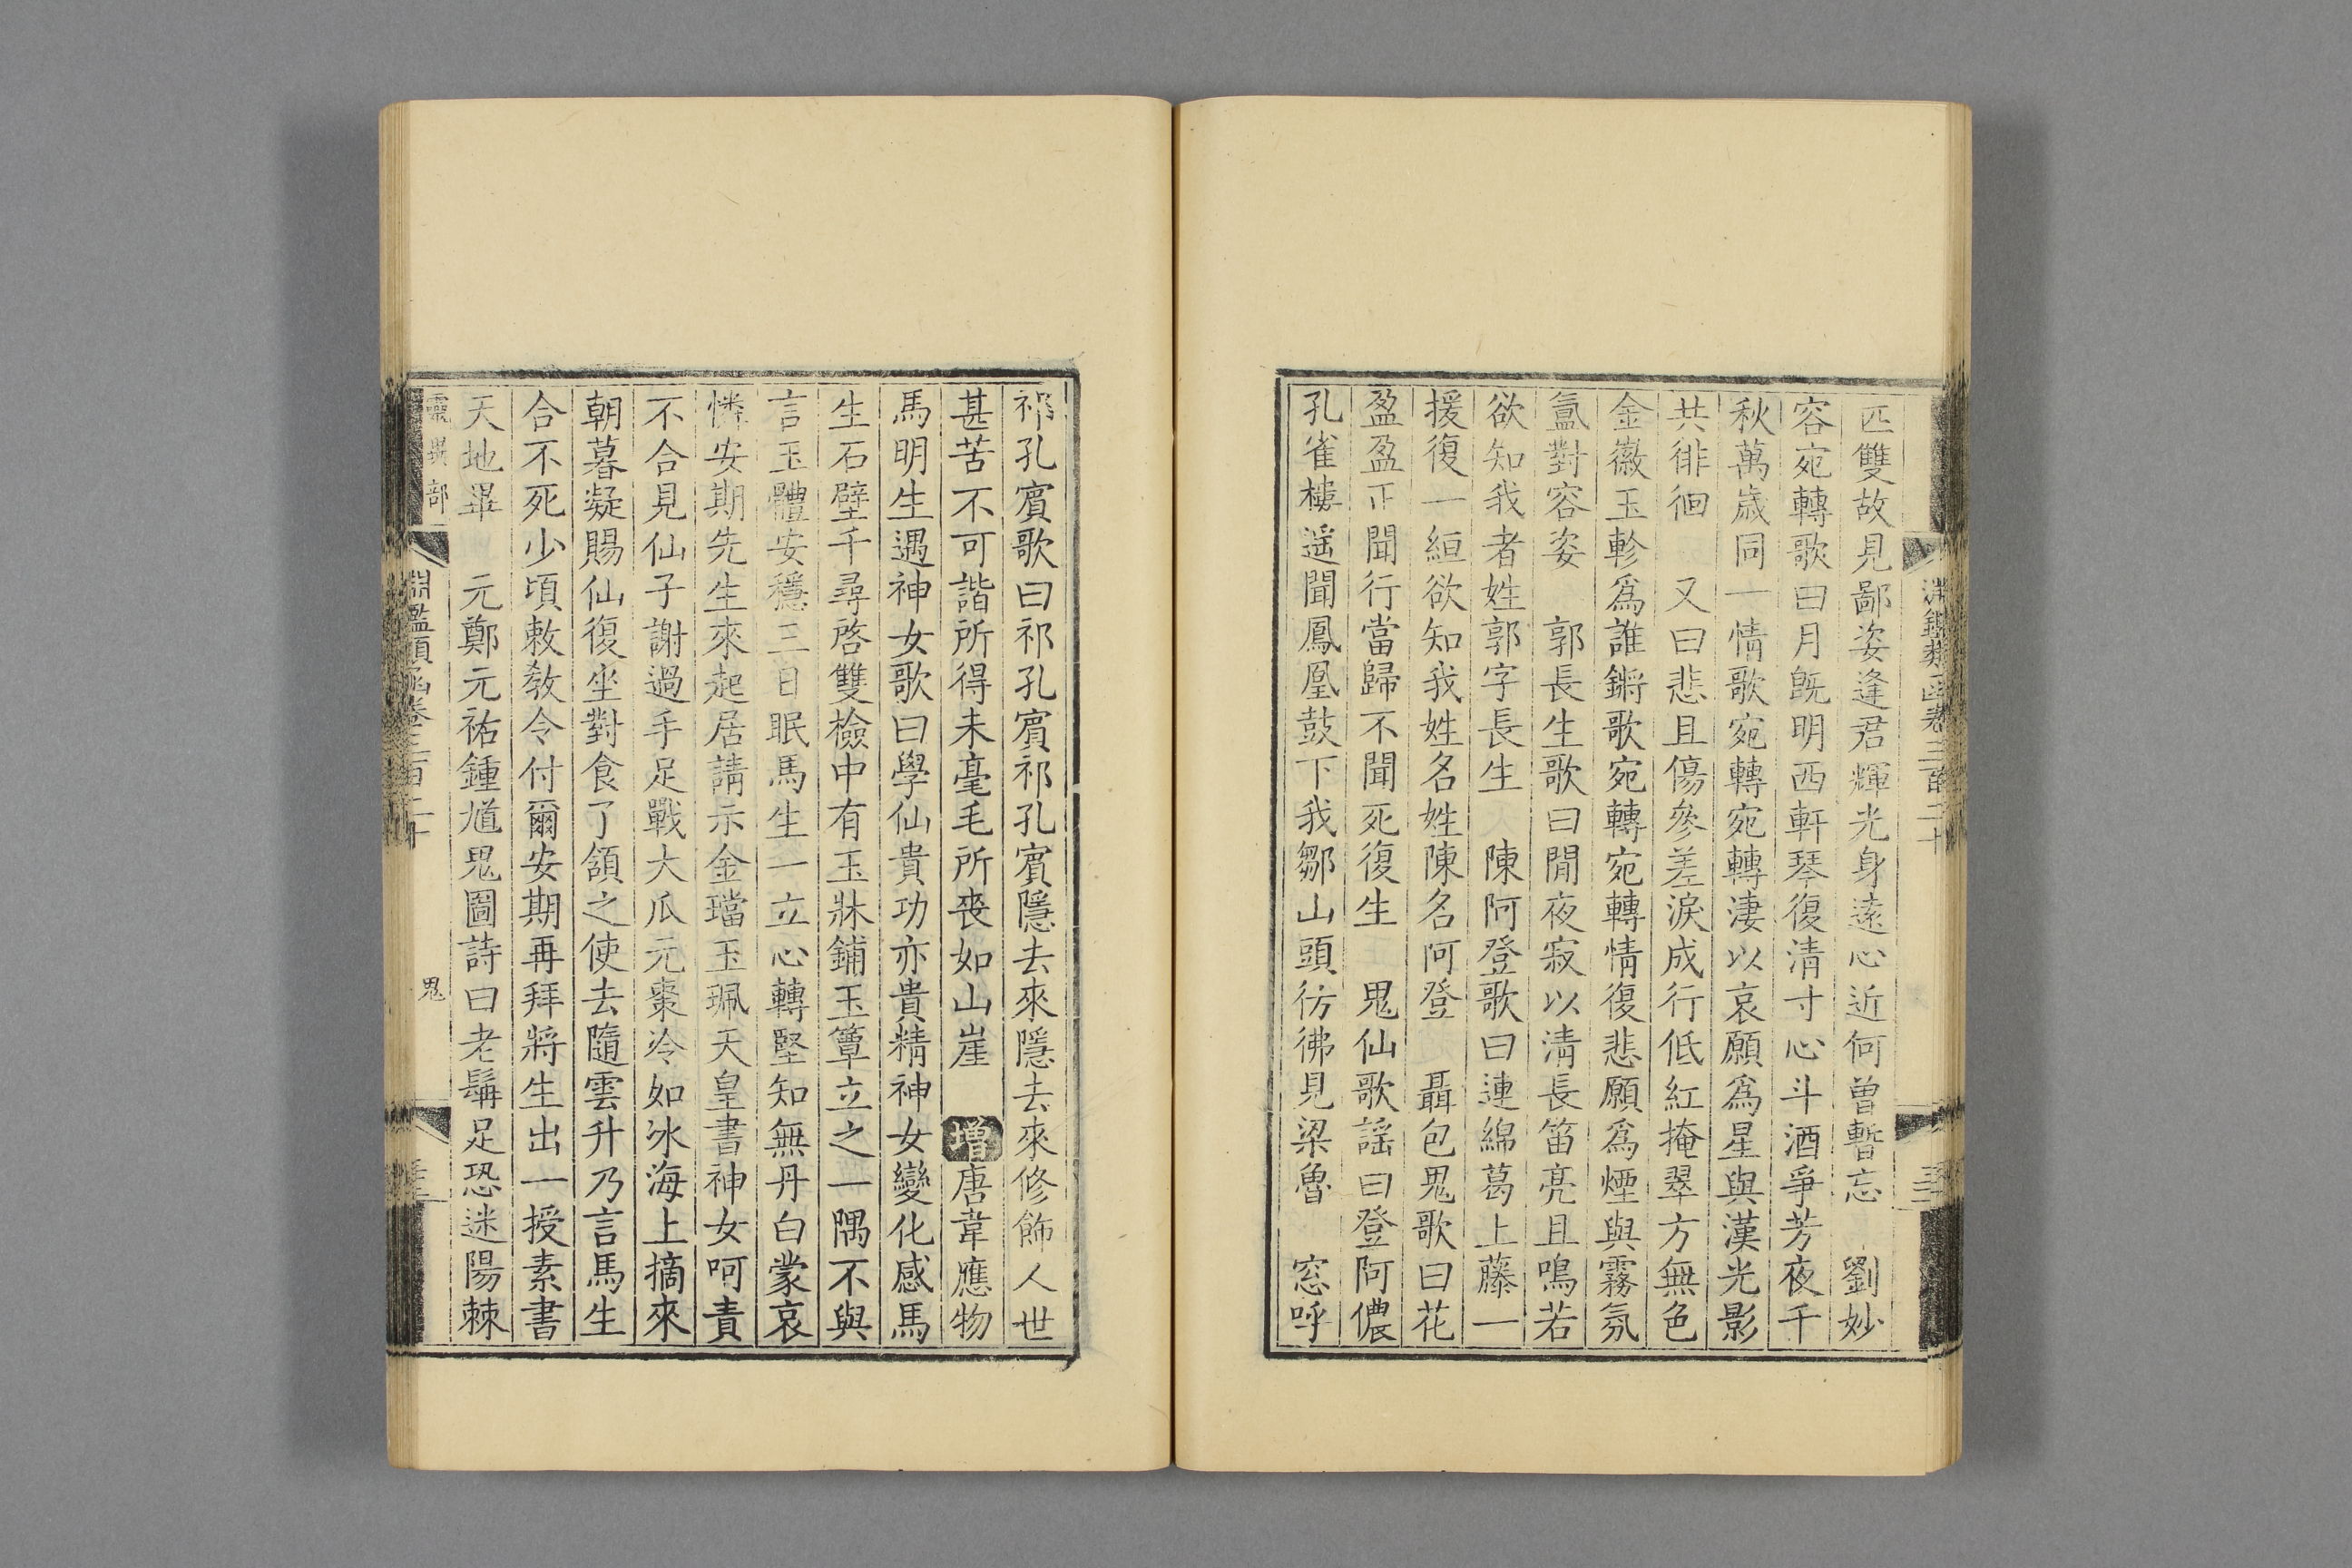 淵鑑類函卷三百二十
匹雙故見鄙姿逢君輝光身遠心近何曾暫忘　劉妙
容宛轉歌曰月旣明西軒琴復清寸心斗酒爭芳夜千
秋萬歲同一情歌宛轉宛轉淒以哀願爲星與漢光影
共徘徊　又曰悲且傷參差淚成行低紅掩翠方無色
金徽玉軫爲誰鏘歌宛轉宛轉情復悲願爲煙與霧氛
氳對容姿　郭長生歌曰閒夜寂以清長笛亮且鳴若
欲知我者姓郭字長生　陳阿登歌曰連綿葛上藤一
援復一絙欲知我姓名姓陳名阿登　聶包鬼歌曰花
盈盈正聞行當歸不聞死復生　鬼仙歌謠曰登阿儂
孔雀樓遥聞鳳凰鼓下我鄒山頭彷彿見梁魯　窓呼
祁孔賓歌曰祁孔賓祁孔賓隱去來隱去來修飾人世
甚苦不可諧所得未毫毛所喪如山崖　增唐韋應物
馬明生遇神女歌曰學仙貴功亦貴精神女變化感馬
生石壁千尋啓雙檢中有玉牀鋪玉簟立之一隅不與
言玉體安穩三日眠馬生一立心轉堅知無丹白蒙哀
憐安期先生來起居請示金璫玉珮天皇書神女呵責
不合見仙子謝過手足戰大瓜元棗冷如冰海上摘來
朝暮凝賜仙復坐對食了頷之使去隨雲升乃言馬生
合不死少頃敕教令付爾安期再拜將生出一授素書
天地畢　元鄭元祐鍾馗鬼圖詩曰老髯足恐迷陽棘
靈異部　淵鑑類函卷三百二十　鬼